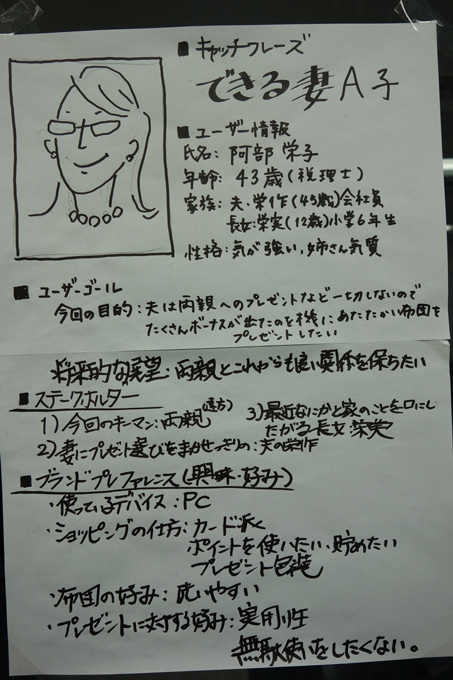 ■ キャッチフレーズ
できる妻 A子
■ ユーザー情報
氏名: 阿部 栄子
年齢: 43歳(税理士)
家族: 夫・栄作(45歳)会社員
長女:栄実(12歳)小学6年生
性格: 気が強い,姉さん気質
■ ユーザーゴール
今回の目的: 夫は両親へのプレゼントなど一切しないので
たくさんボーナスが出たのを機にあたたかい布団を
プレゼントしたい
将来的な展望:両親とこれからも良い関係を保ちたい
■ ステークホルダー
1)今回のキーマン:両親(遠方)
2)妻にプレゼント選びをまかせっきりの:夫の栄作
3)最近なにかと家のことを口にし
たがる長女:栄実
■ ブランドプレファレンス(興味・好み)
・使っているデバイス:PC
・ショッピングの仕方:カード派
ポイントを使いたい・貯めたい
プレゼント包装
・布団の好み:洗いやすい
・プレゼントに対する好み:実用性
無駄使いをしたくない。